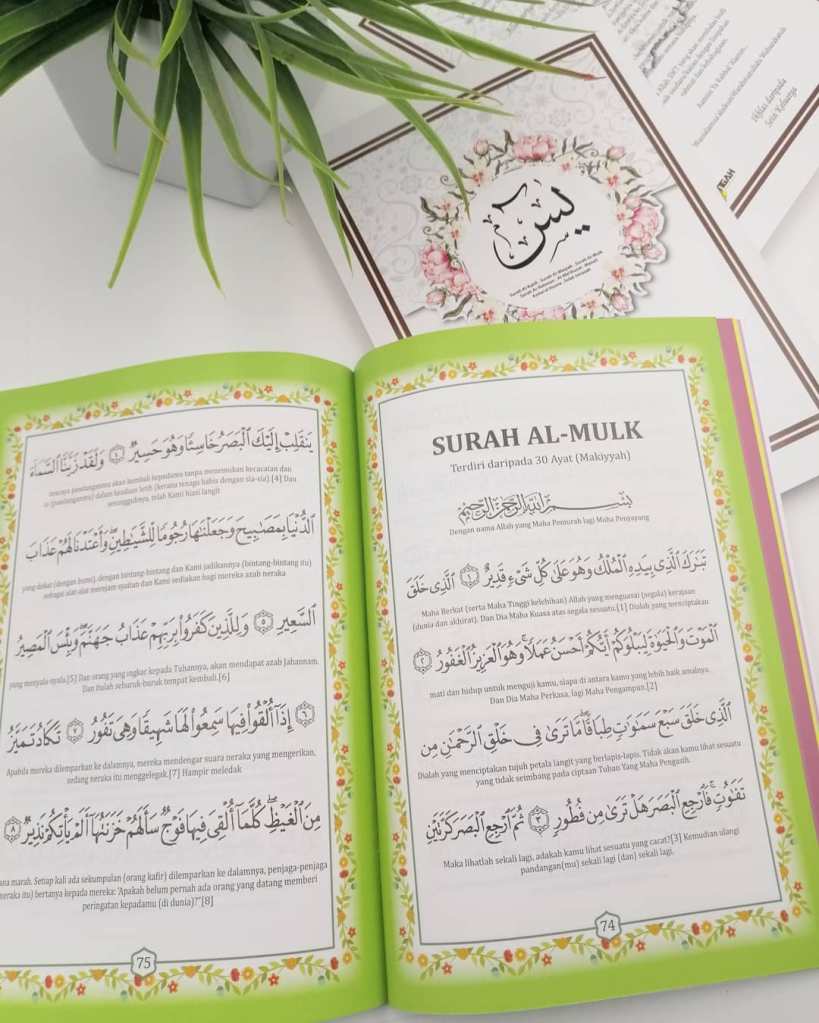 Aamiin Ya Rabbal 'Alamin...
Ikhlas daripada
Seisi Keluarga
يس
SURAH AL-MULK
Terdiri daripada 30 Ayat (Makiyyah)
بِسْمِ ٱللَّهِ ٱلرَّحْمَٰنِ ٱلرَّحِيمِ
Dengan nama Allah yang Maha Pemurah lagi Maha Penyayang
تَبَٰرَكَ ٱلَّذِى بِيَدِهِ ٱلْمُلْكُ وَهُوَ عَلَىٰ كُلِّ شَىْءٍ قَدِيرٌ ١ ٱلَّذِى خَلَقَ
Maha Berkat (serta Maha Tinggi kelebihan) Allah yang menguasai (segala) kerajaan
(dunia dan akhirat). Dan Dia Maha Kuasa atas segala sesuatu.[1] Dialah yang menciptakan
ٱلْمَوْتَ وَٱلْحَيَوٰةَ لِيَبْلُوَكُمْ أَيُّكُمْ أَحْسَنُ عَمَلًا ۚ وَهُوَ ٱلْعَزِيزُ ٱلْغَفُورُ ٢
mati dan hidup untuk menguji kamu, siapa di antara kamu yang lebih baik amalnya.
Dan Dia Maha Perkasa, lagi Maha Pengampun.[2]
ٱلَّذِى خَلَقَ سَبْعَ سَمَٰوَٰتٍ طِبَاقًا ۖ مَّا تَرَىٰ فِى خَلْقِ ٱلرَّحْمَٰنِ مِن
Dialah yang menciptakan tujuh petala langit yang berlapis-lapis. Tidak akan kamu lihat sesuatu
yang tidak seimbang pada ciptaan Tuhan Yang Maha Pengasih.
تَفَٰوُتٍ ۖ فَٱرْجِعِ ٱلْبَصَرَ هَلْ تَرَىٰ مِن فُطُورٍ ٣ ثُمَّ ٱرْجِعِ ٱلْبَصَرَ كَرَّتَيْنِ
Maka lihatlah sekali lagi, adakah kamu lihat sesuatu yang cacat?[3] Kemudian ulangi
pandangan(mu) sekali lagi (dan) sekali lagi.
74
يَنقَلِبْ إِلَيْكَ ٱلْبَصَرُ خَاسِئًا وَهُوَ حَسِيرٌ ٤ وَلَقَدْ زَيَّنَّا ٱلسَّمَآءَ
pandanganmu akan kembali kepadamu tanpa menemukan kecacatan dan
(pandanganmu) dalam keadaan letih (kerana tenaga habis dengan sia-sia).[4] Dan
sesungguhnya, telah Kami hiasi langit
ٱلدُّنْيَا بِمَصَٰبِيحَ وَجَعَلْنَٰهَا رُجُومًا لِّلشَّيَٰطِينِ ۖ وَأَعْتَدْنَا لَهُمْ عَذَابَ
yang dekat (dengan bumi), dengan bintang-bintang dan Kami jadikannya (bintang-bintang itu)
sebagai alat-alat merejam syaitan dan Kami sediakan bagi mereka azab neraka
ٱلسَّعِيرِ ٥ وَلِلَّذِينَ كَفَرُوا۟ بِرَبِّهِمْ عَذَابُ جَهَنَّمَ ۖ وَبِئْسَ ٱلْمَصِيرُ
yang menyala-nyala.[5] Dan orang yang ingkar kepada Tuhannya, akan mendapat azab Jahannam.
Dan itulah seburuk-buruk tempat kembali.[6]
٦ إِذَآ أُلْقُوا۟ فِيهَا سَمِعُوا۟ لَهَا شَهِيقًا وَهِىَ تَفُورُ ٧ تَكَادُ تَمَيَّزُ
Apabila mereka dilemparkan ke dalamnya, mereka mendengar suara neraka yang mengerikan,
sedang neraka itu menggelegak.[7] Hampir meledak
مِنَ ٱلْغَيْظِ ۖ كُلَّمَآ أُلْقِىَ فِيهَا فَوْجٌ سَأَلَهُمْ خَزَنَتُهَآ أَلَمْ يَأْتِكُمْ نَذِيرٌ ٨
marah. Setiap kali ada sekumpulan (orang kafir) dilemparkan ke dalamnya, penjaga-penjaga
(neraka itu) bertanya kepada mereka: "Apakah belum pernah ada orang yang datang memberi
peringatan kepadamu (di dunia)?"[8]
75